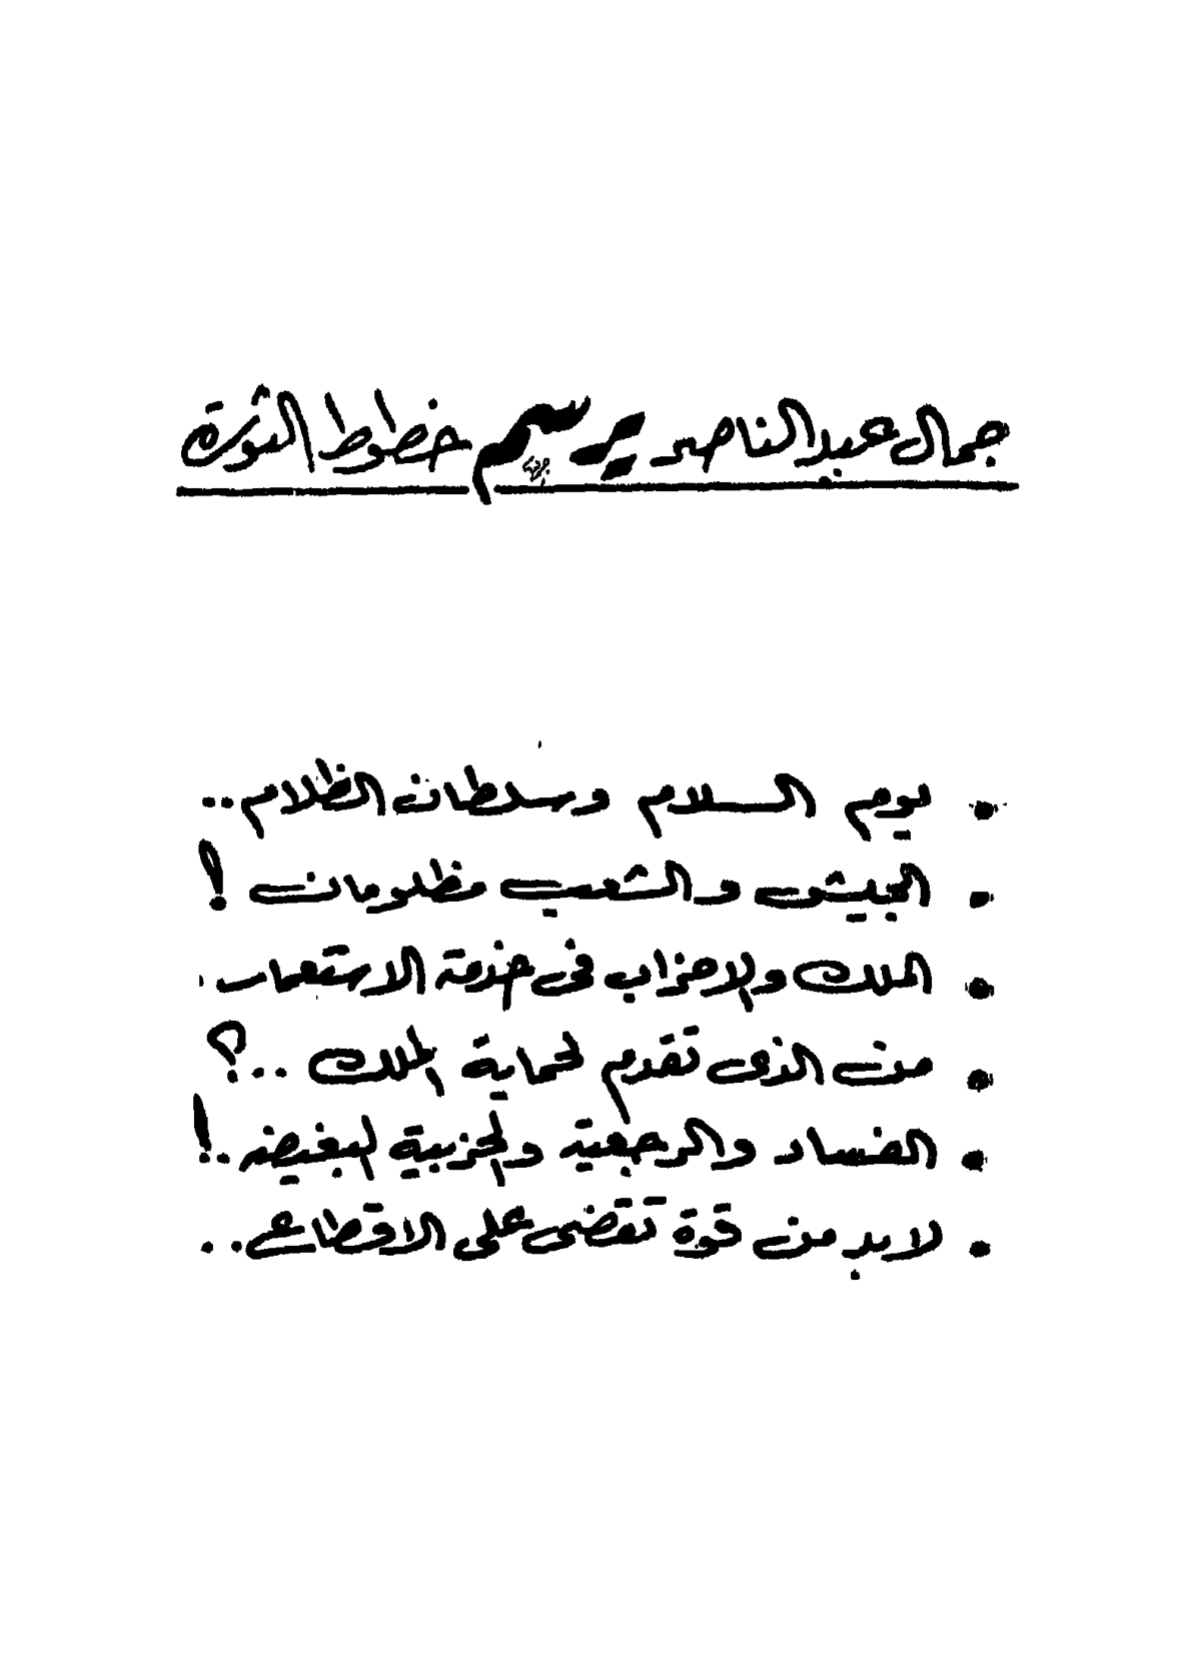 جمال عبد الناصر يرسم خطوط الثورة
• يوم السلام وسلطان الظلام ..
• الجيش والشعب مظلومان !
• الملك والاحزاب فى خدمة الاستعمار .
• من الذى تقدم لحماية الملك ..؟
• الفساد والرجعية والحزبية البغيضة .!
• لابد من قوة تقضى على الاقطاع ..